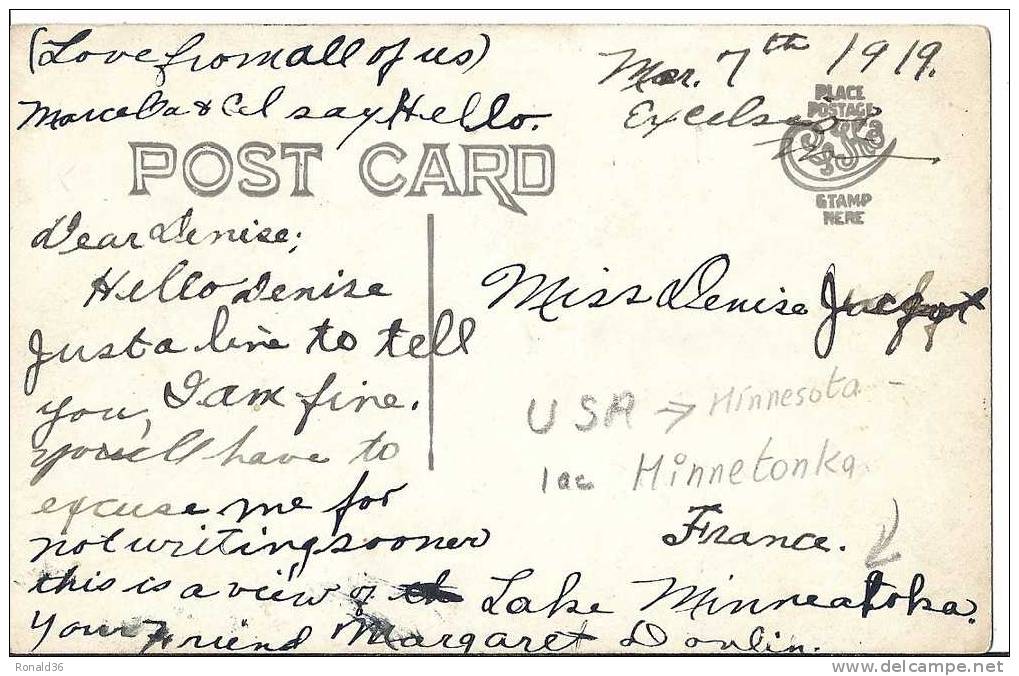 (Love from all of us)
Marcella & Cel say Hello.
Mar. 7th 1919.
Excelsior
PLACE
POSTAGE
STAMP
HERE
POST CARD
Dear Denise;
Hello Denise
Just a line to tell
you, I am fine.
You'll have to
excuse me for
not writing sooner
this is a view of Lake Minneatoka.
Your Friend Margaret Donlin.
Miss Denise
USA → Minnesota -
lac Minnetonka
France.
Ronald36
www.delcampe.net